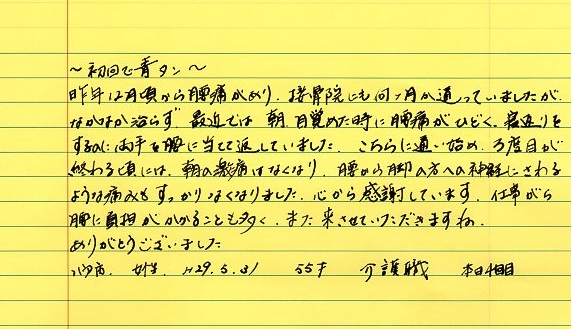 ～初回で青タン～
昨年12月頃から腰痛があり、接骨院にも何ヶ月か通っていましたが
なかなか治らず、最近では、朝、目覚めた時に腰痛がひどく、寝返りを
するのに両手を腰に当て返していました。こちらに通い始め、3度目が
終わる頃には、朝の激痛はなくなり、腰から脚の方への神経にさわる
ような痛みもすっかりなくなりました。心から感謝しています。仕事がら
腰に負担がかかることも多く、また来させていただきますね。
ありがとうございました
女性、H29.5.31 55才 介護職 本日4回目